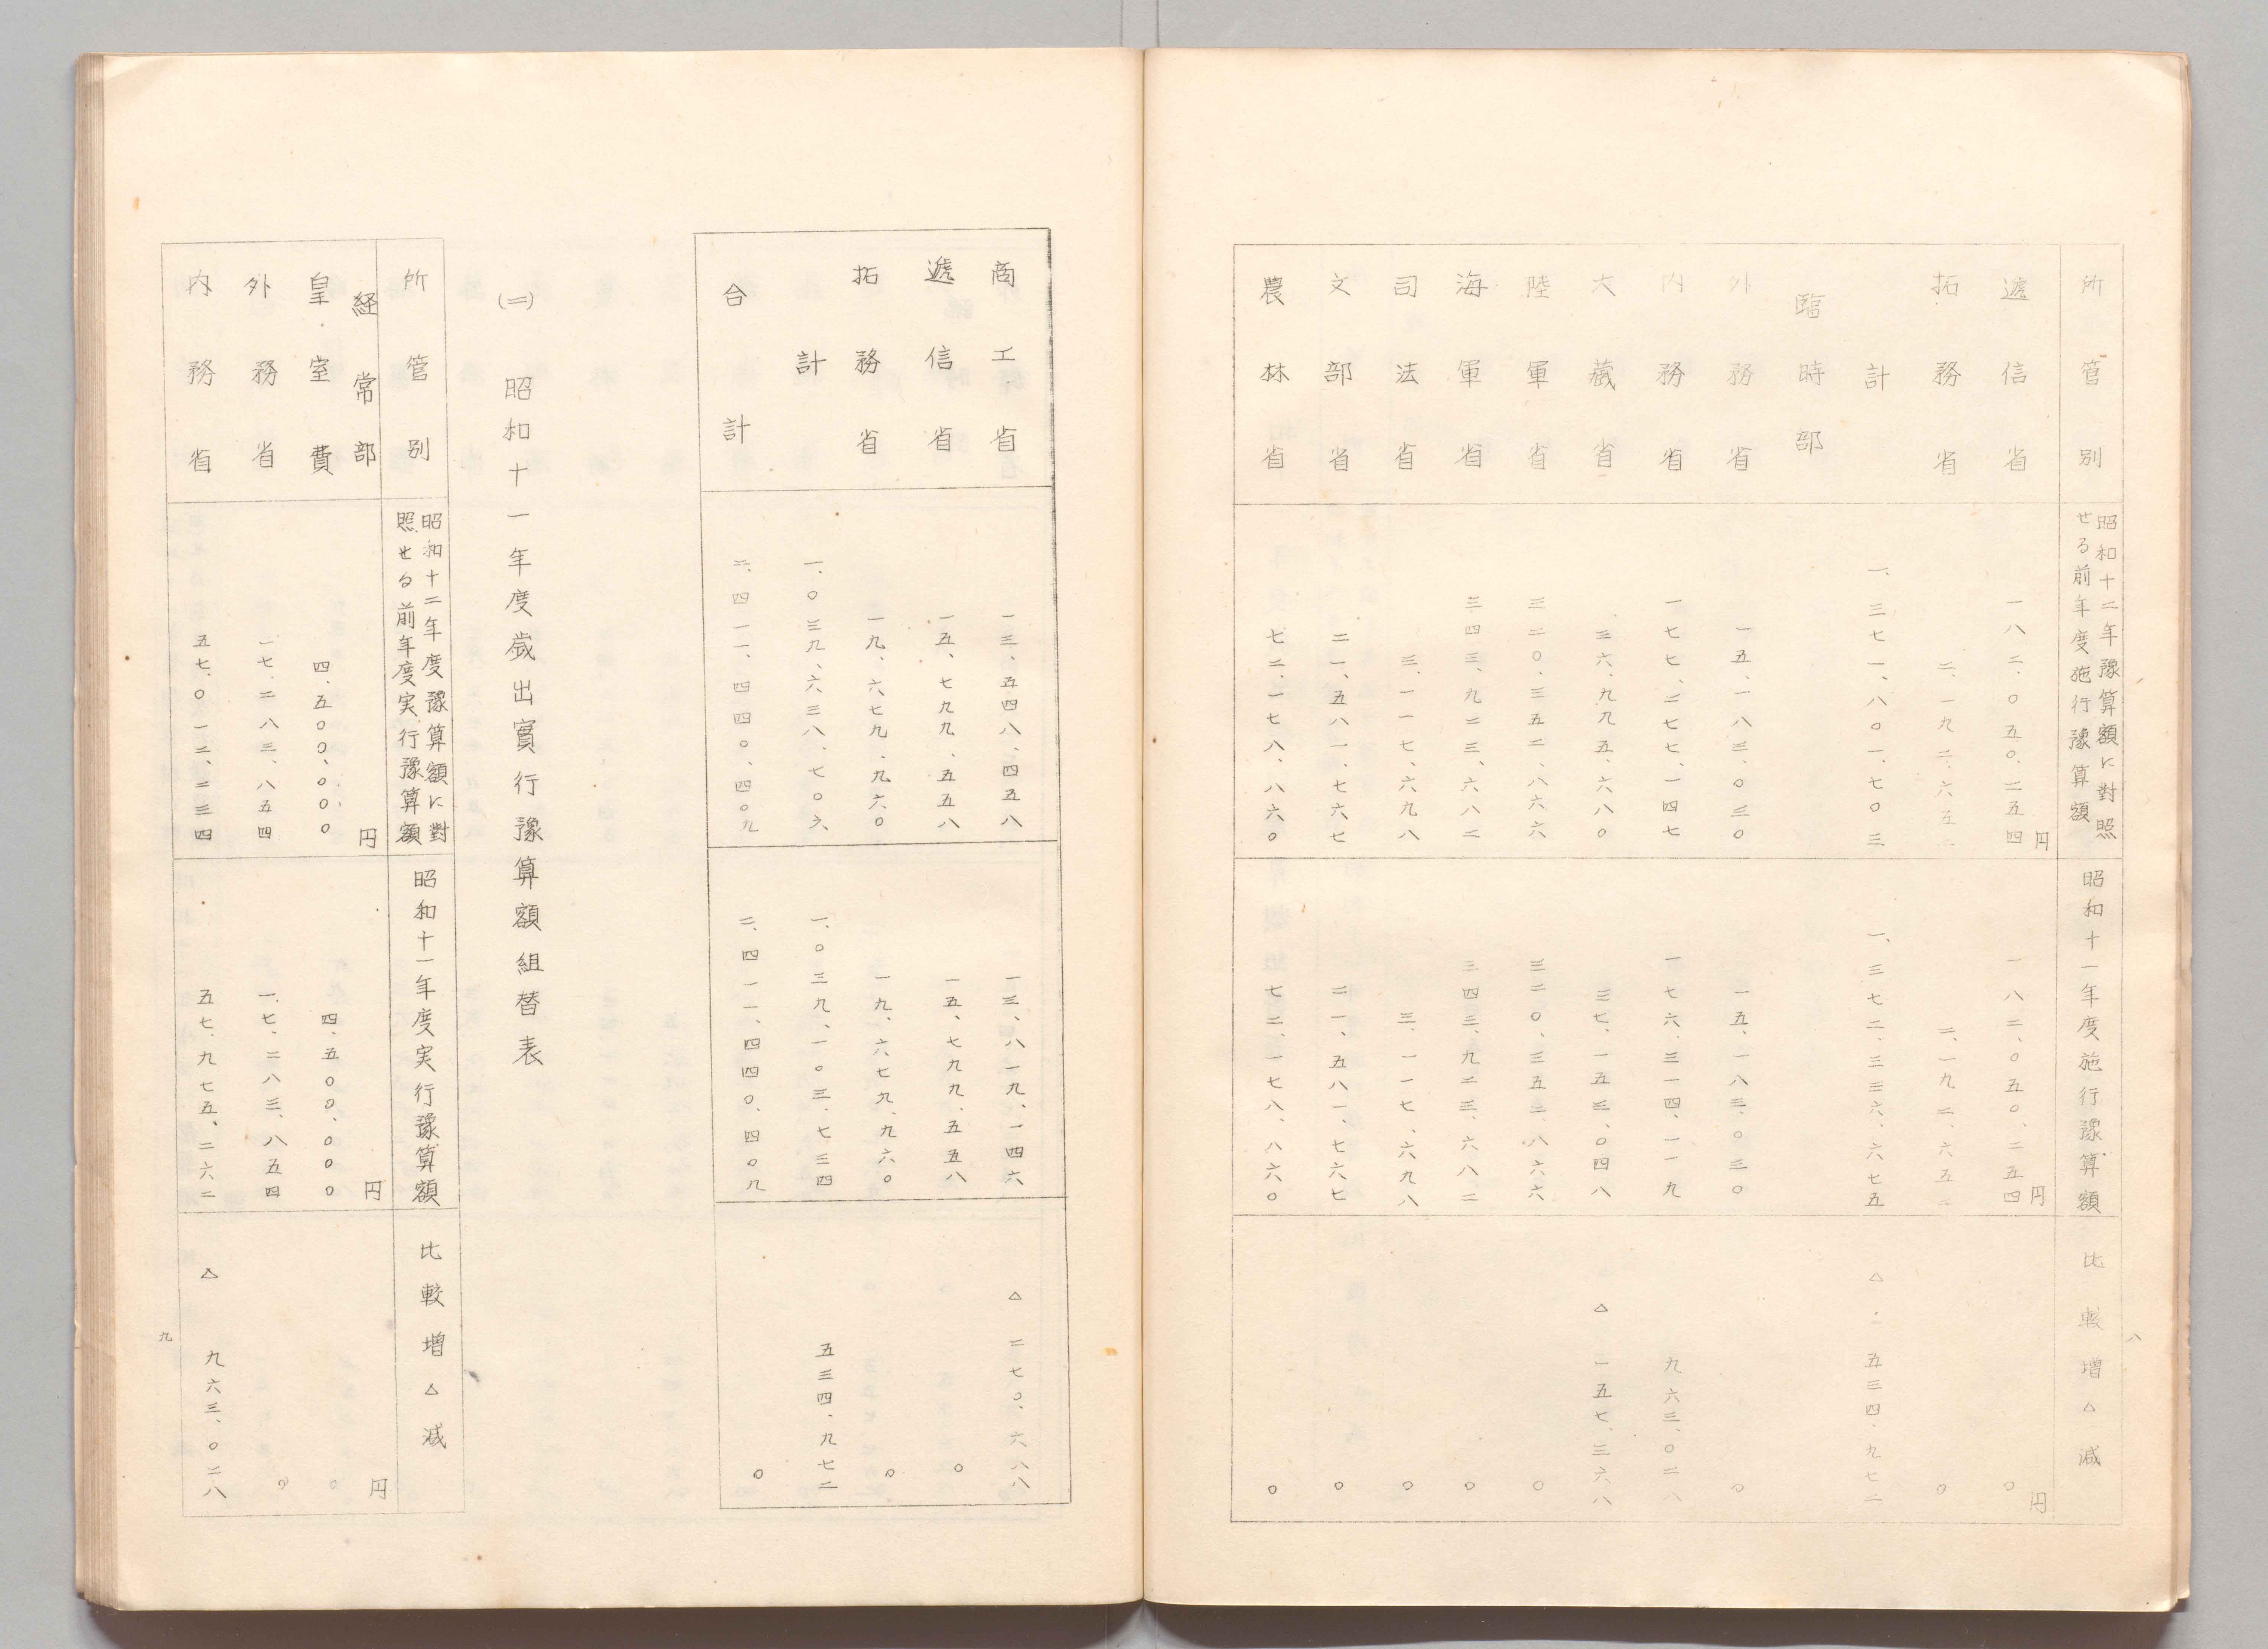 所管別 昭和十二年豫算額に對照せる前年度施行豫算額 昭和十一年度施行豫算額 比較増△減
逓信省 一八二、〇五〇、二五四円 一八二、〇五〇、二五四円 〇円
拓務省 二、一九二、六五二 二、一九二、六五二 〇
計 一、三七一、八〇一、七〇三 一、三七二、三三六、六七五 △五三四、九七二
臨時部
外務省 一五、一八三、〇三〇 一五、一八三、〇三〇 〇
内務省 一七七、二七七、一四七 一七六、三一四、一一九 九六三、〇二八
大藏省 三六、九九五、六八〇 三七、一五三、〇四八 △一五七、三六八
陸軍省 三二〇、三五二、八六六 三二〇、三五二、八六六 〇
海軍省 三四三、九二三、六八二 三四三、九二三、六八二 〇
司法省 三、一一七、六九八 三、一一七、六九八 〇
文部省 二一、五八一、七六七 二一、五八一、七六七 〇
農林省 七二、一七八、八六〇 七二、一七八、八六〇 〇
八
商工省 一三、五四八、四五八 一三、八一九、一四六 △二七〇、六八八
逓信省 一五、七九九、五五八 一五、七九九、五五八 〇
拓務省 一九、六七九、九六〇 一九、六七九、九六〇 〇
計 一、〇三九、六三八、七〇六 一、〇三九、一〇三、七三四 五三四、九七二
合計 二、四一一、四四〇、四〇九 二、四一一、四四〇、四〇九 〇
(二) 昭和十一年度歳出實行豫算額組替表
所管別 昭和十二年度豫算額に對照せる前年度実行豫算額 昭和十一年度実行豫算額 比較増△減
経常部 円 円 円
皇室費 四、五〇〇、〇〇〇 四、五〇〇、〇〇〇 〇
外務省 一七、二八三、八五四 一七、二八三、八五四 〇
内務省 五七、〇一二、二三四 五七、九七五、二六二 △九六三、〇二八
九